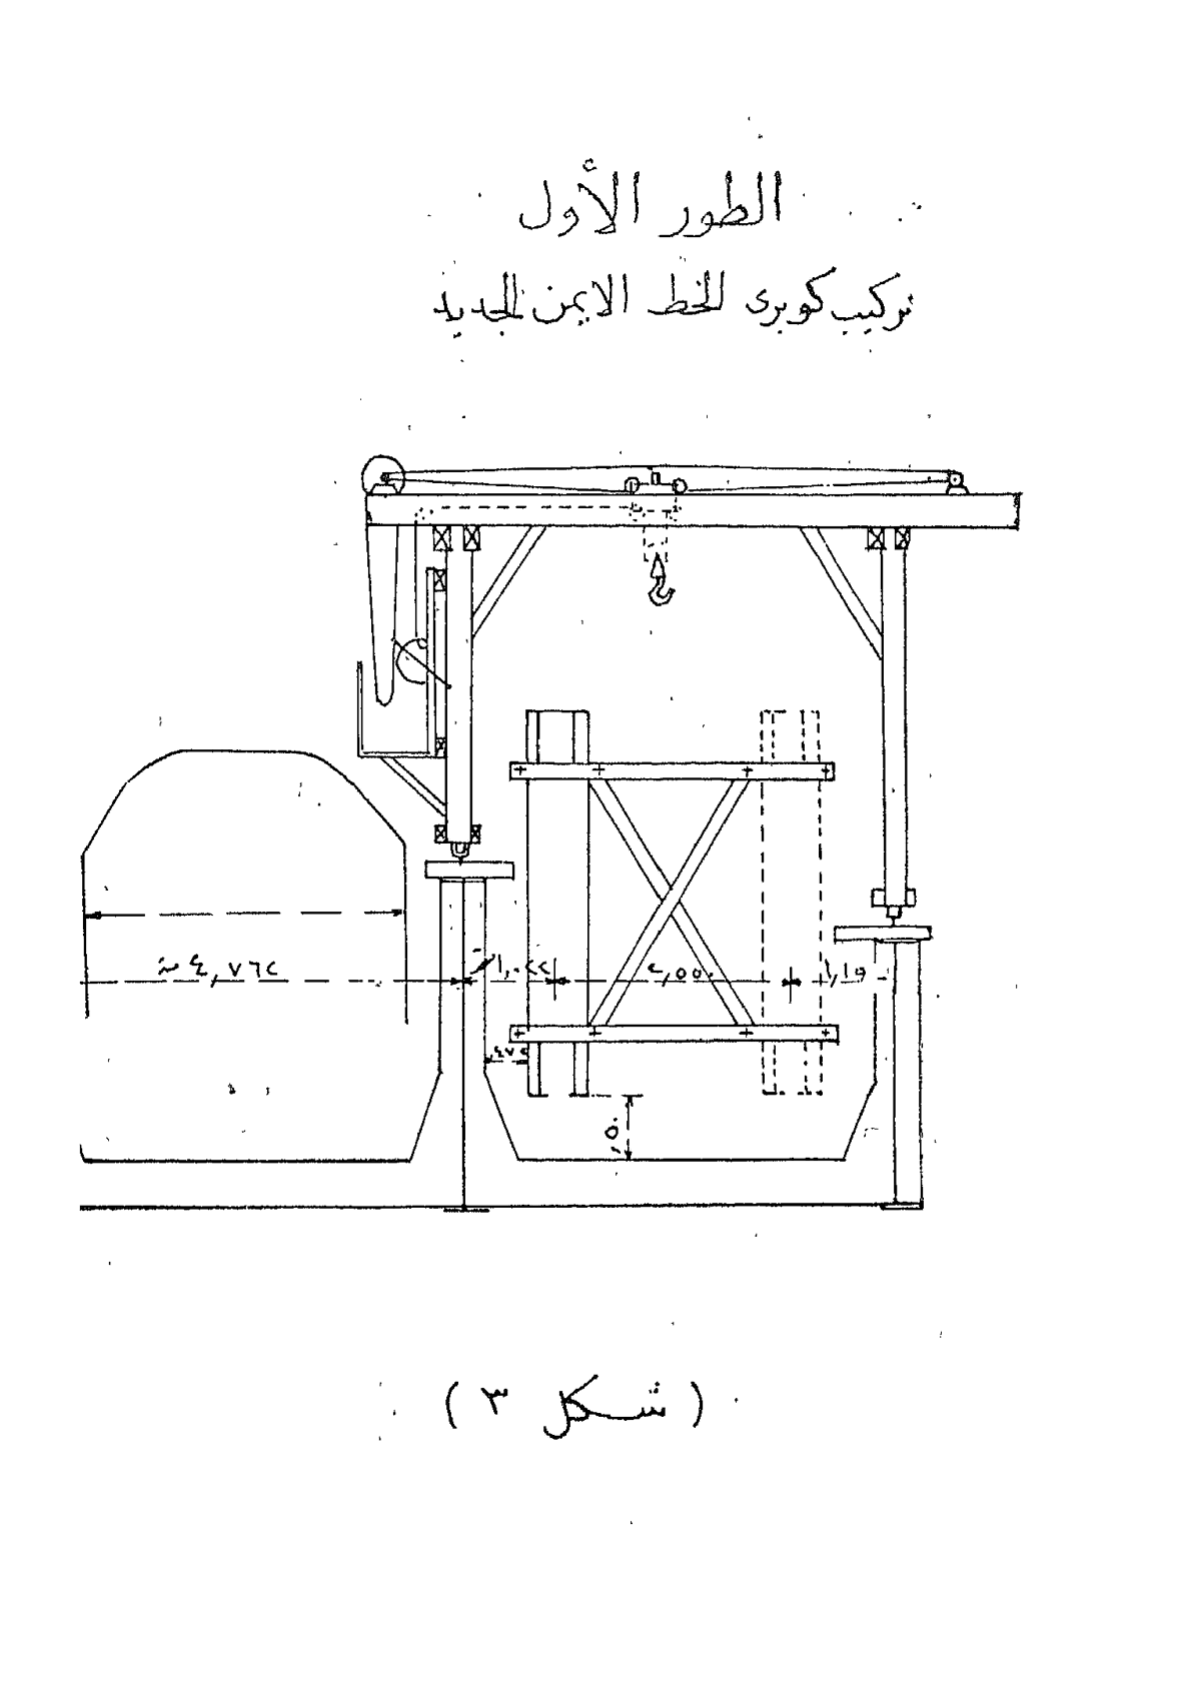 الطور الأول
تركيب كوبرى للخط الايمن الجديد
٤,٧٦٢
١,٠٢٢
٢,٥٥٠
١,١٥
,٤٧٢
,٥٠
( شكل ٣ )